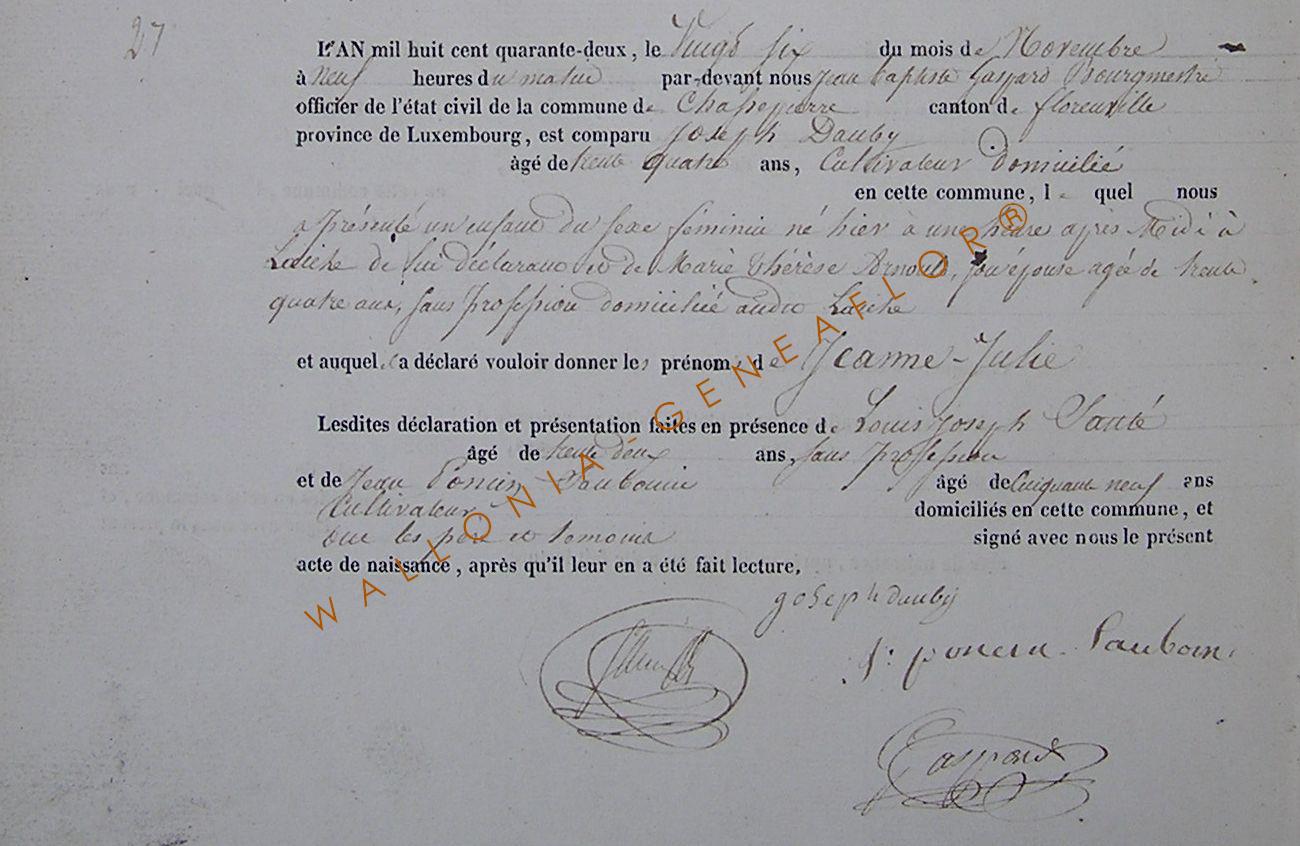 27
L'AN mil huit cent quarante-deux, le Vingt six du mois de Novembre
à neuf heures du matin par-devant nous Jean Baptiste Gaspard Bourgmestre
officier de l'état civil de la commune de Chassepierre canton de florenville
province de Luxembourg, est comparu Joseph Dauby
âgé de trente quatre ans, Cultivateur domicilié
en cette commune, le quel nous
a présenté un enfant du sexe féminin né hier à une heure après Midi à
Laiche de lui déclarant et de Marie Thérèse Arnould, son épouse agée de trente
quatre ans, sans profession domiciliée audit Laiche
et auquel il a déclaré vouloir donner les prénoms de Jeanne-Julie
Lesdites déclaration et présentation faites en présence de Louis Joseph Santé
âgé de trente deux ans, sans profession
et de Jean Poncin Saubouin âgé de Cinquante neuf ans
Cultivateur domiciliés en cette commune, et
ont les père et temoins signé avec nous le présent
acte de naissance, après qu'il leur en a été fait lecture.
Joseph dauby
poncin
Gaspard
WALLONIA - GENEAFLOR®